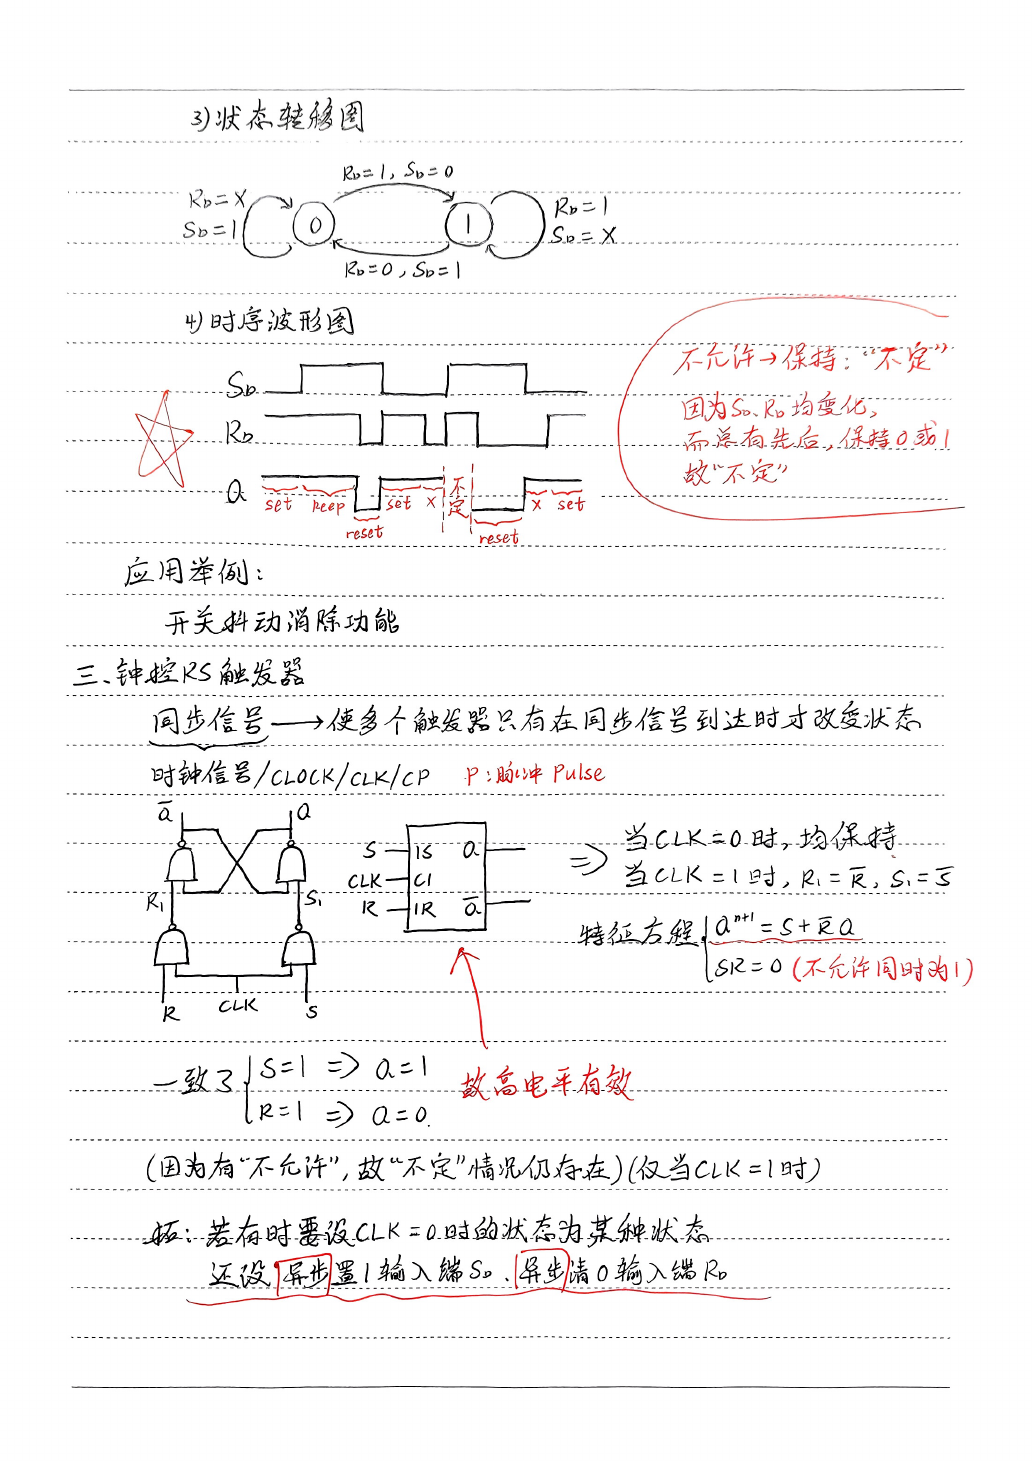 3)状态转移图
R_D=1, S_D=0
R_D=X
S_D=1
0
1
R_D=1
S_D=X
R_D=0, S_D=1
4)时序波形图
不允许→保持:“不定”
因为S_D、R_D均变化,
而总有先后,保持0或1
故“不定”
S_D
R_D
Q
set keep reset set X 不定 reset X set
应用举例:
开关抖动消除功能
三、钟控RS触发器
同步信号→使多个触发器只有在同步信号到达时才改变状态
时钟信号/CLOCK/CLK/CP P:脉冲 Pulse
Q̅ Q
R₁ S₁
R CLK S
S 1S Q
CLK C1
R 1R Q̅
⇒ 当CLK=0时,均保持
当CLK=1时,R₁=R̅,S₁=S̅
特征方程 Qⁿ⁺¹=S+R̅Q
SR=0(不允许同时为1)
一致了 S=1 ⇒ Q=1
R=1 ⇒ Q=0.
故高电平有效
(因为有“不允许”,故“不定”情况仍存在)(仅当CLK=1时)
拓:若有时要设CLK=0时的状态为某种状态
还设异步置1输入端S_D、异步清0输入端R_D